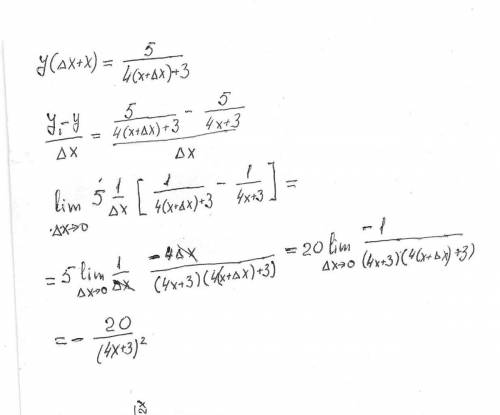 y(Δx+x) = 5/(4(x+Δx)+3)
(y₁-y)/Δx = (5/(4(x+Δx)+3) - 5/(4x+3))/Δx
lim Δx→0 5 1/Δx [1/(4(x+Δx)+3 - 1/(4x+3)] =
= 5 lim Δx→0 1/Δx -4Δx/((4x+3)(4(x+Δx)+3)) = 20 lim Δx→0 -1/((4x+3)(4(x+Δx)+3)
= - 20/(4x+3)²